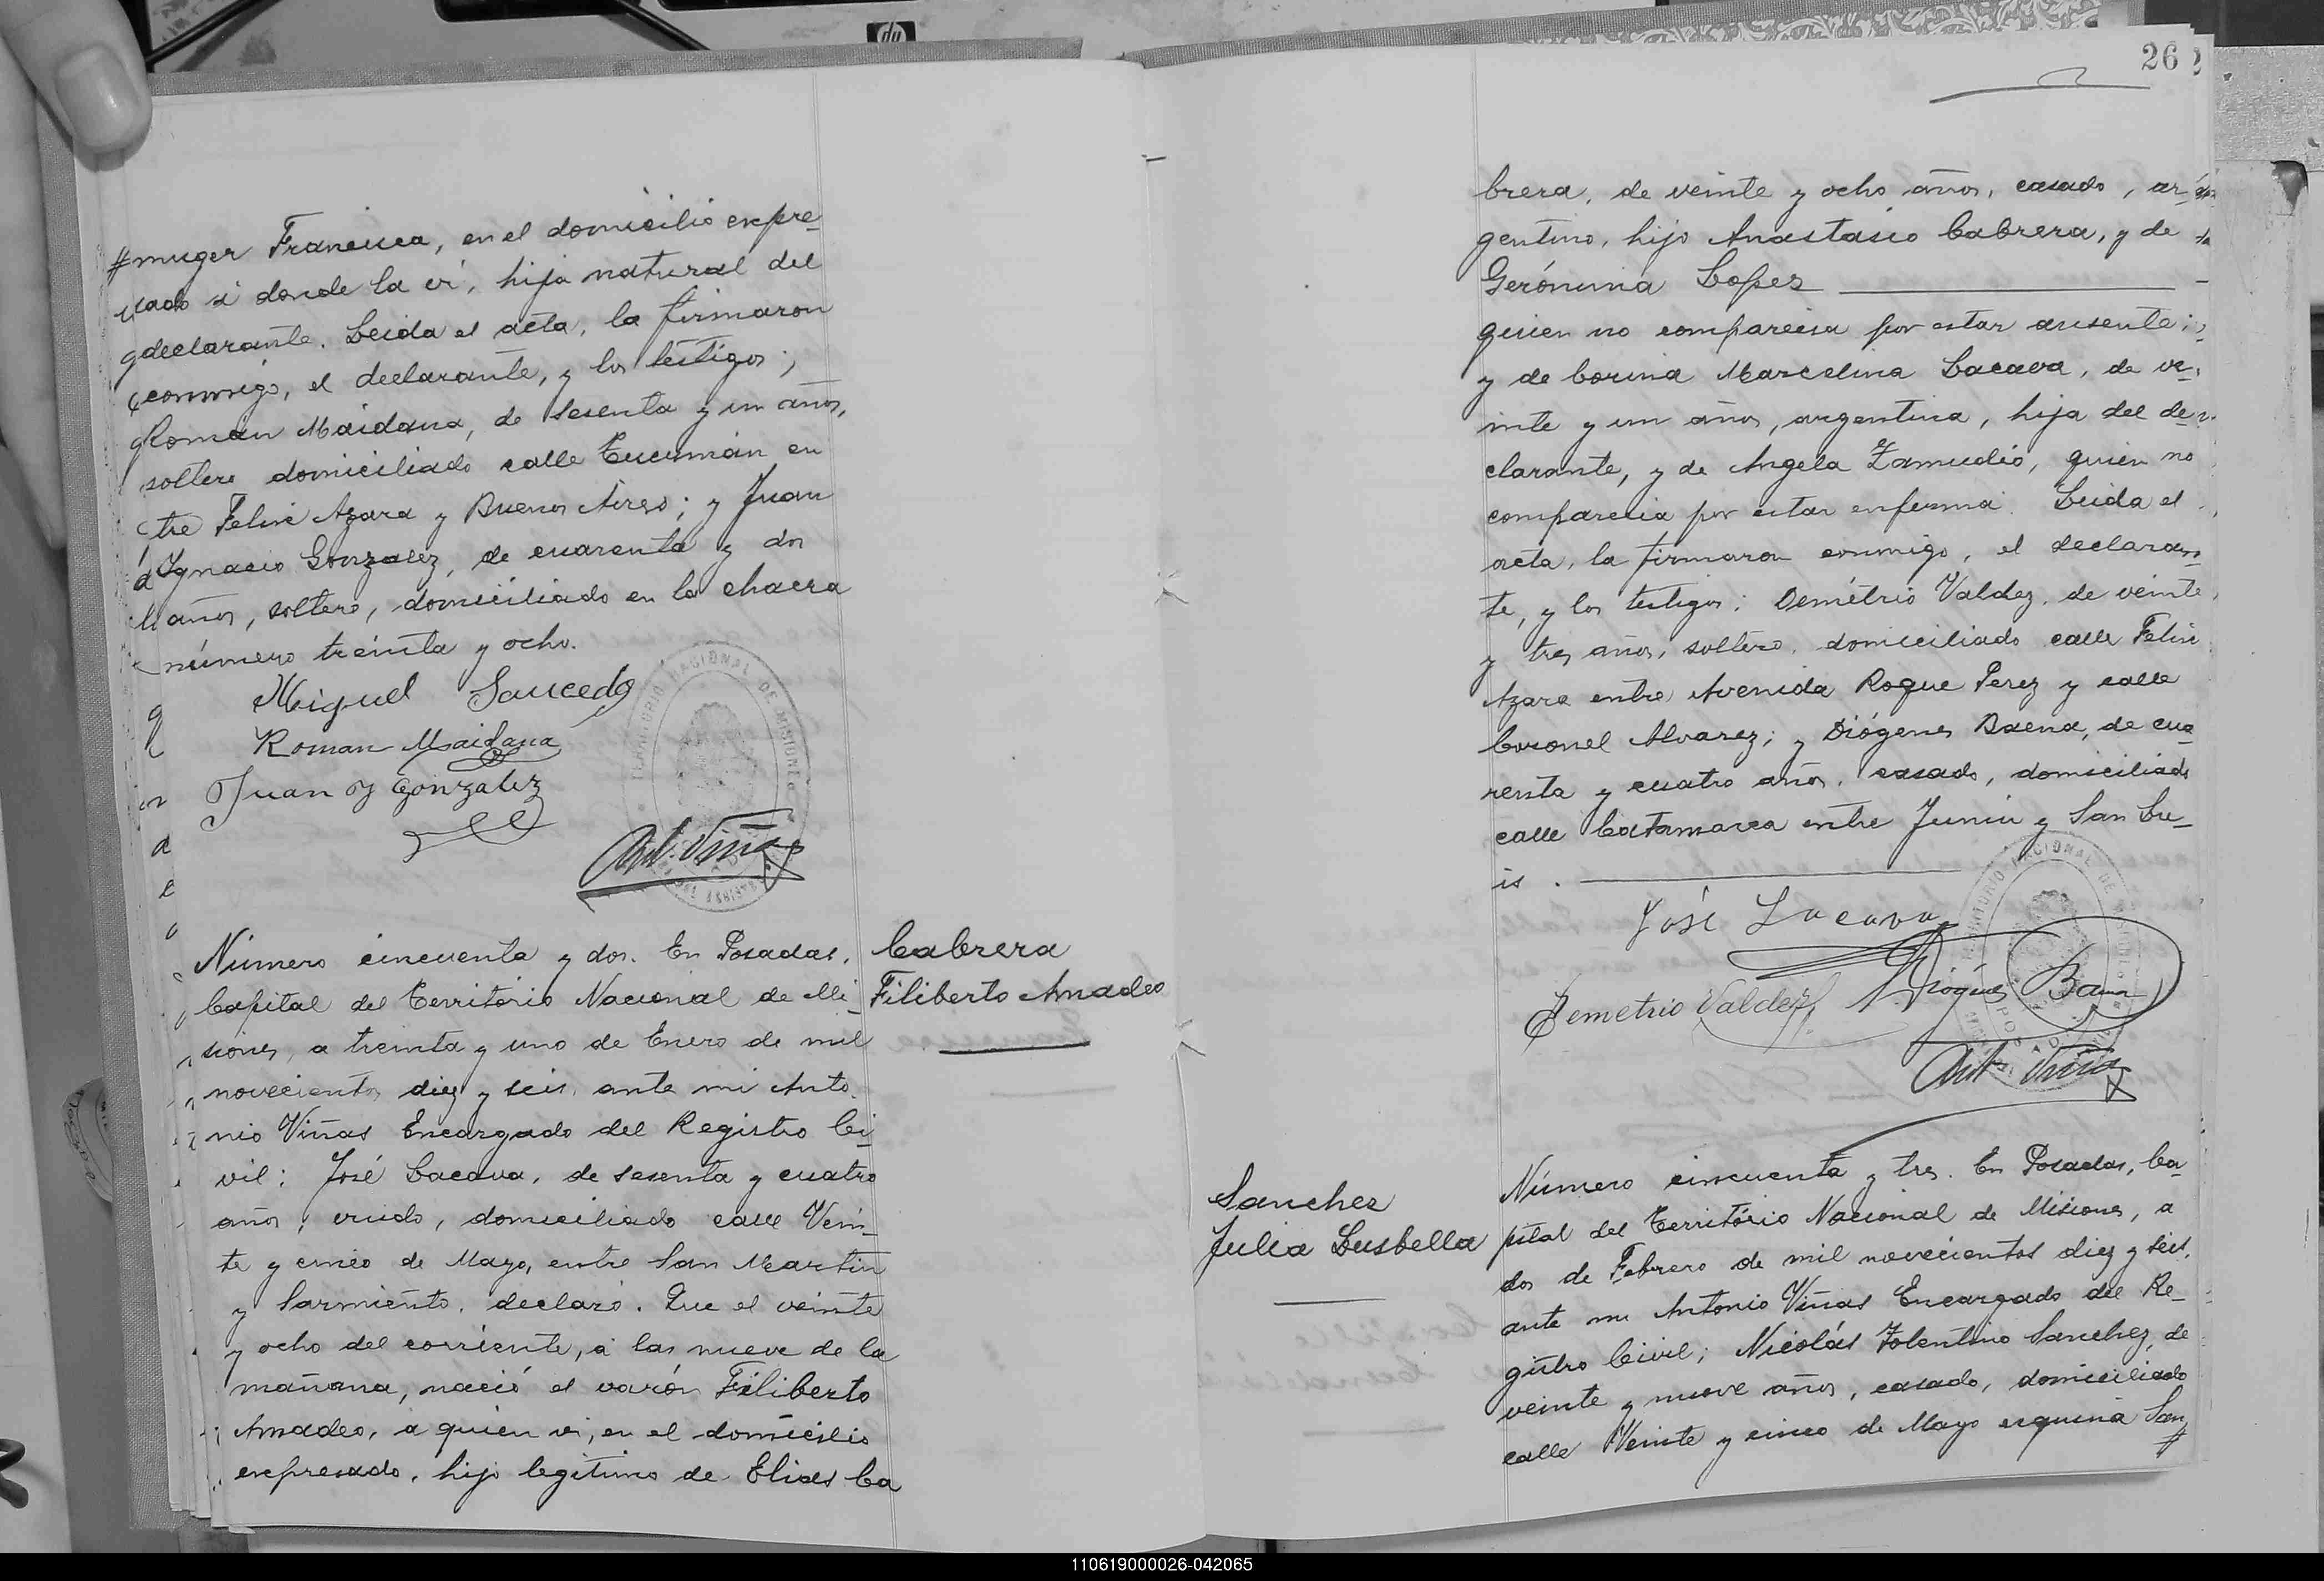 #muger Francisca, en el domicilio expre-
sado á donde la ví, hija natural del
declarante. Leida el acta, la firmaron
conmigo, el declarante, y los testigos;
Roman Maidana, de sesenta y un años,
soltero domiciliado calle Tucumán en
tre Felix Azara y Buenos Aires; y Juan
Ygnacio Gonzalez, de cuarenta y dos
años, soltero, domiciliado en la chacra
número treinta y ocho.
Miguel Saucedo
Roman Maidana
Juan Y Gonzalez
TERRITORIO NACIONAL DE MISIONES
Ant. Viñas
Número cincuenta y dos. En Posadas,
Capital del Territorio Nacional de Mi-
siones, a treinta y uno de Enero de mil
novecientos diez y seis, ante mi Anto-
nio Viñas Encargado del Registro Ci-
vil; José Lacava, de sesenta y cuatro
años, viudo, domiciliado calle Vein-
te y cinco de Mayo, entre San Martin
y Sarmiento, declaró. Que el veinte
y ocho del corriente, á las nueve de la
mañana, nació el varón Filiberto
Amadeo, á quien ví, en el domicilio
expresado, hijo legitimo de Elias Ca
Cabrera
Filiberto Amadeo
26
brera, de veinte y ocho años, casado, ar-
gentino, hijo Anastasio Cabrera, y de
Gerónima Lopez
quien no comparecia por estar ausente;
y de Corina Marcelina Lacava, de ve-
inte y un años, argentina, hija del de-
clarante, y de Angela Zamudio, quien no
comparecia por estar enferma. Leida el
acta, la firmaron conmigo, el declaran-
te, y los testigos; Demétrio Valdez, de veinte
y tres años, soltero, domiciliado calle Felix
Azara entre Avenida Roque Perez y calle
Coronel Alvarez; y Diógenes Baena, de cua-
renta y cuatro años, casado, domiciliado
calle Catamarca entre Junin y San Lu-
is.
José Lacava
Demetrio Valdez
Diógenes Baena
TERRITORIO NACIONAL DE MISIONES
Ant. Viñas
Sanchez
Julia Lusbella
Número cincuenta y tres. En Posadas, Ca-
pital del Território Nacional de Misiones, a
dos de Febrero de mil novecientos diez y seis,
ante mi Antonio Viñas Encargado del Re-
gistro Civil; Nicolás Tolentino Sanchez, de
veinte y nueve años, casado, domiciliado
calle Veinte y cinco de Mayo esquina San
#
110619000026-042065